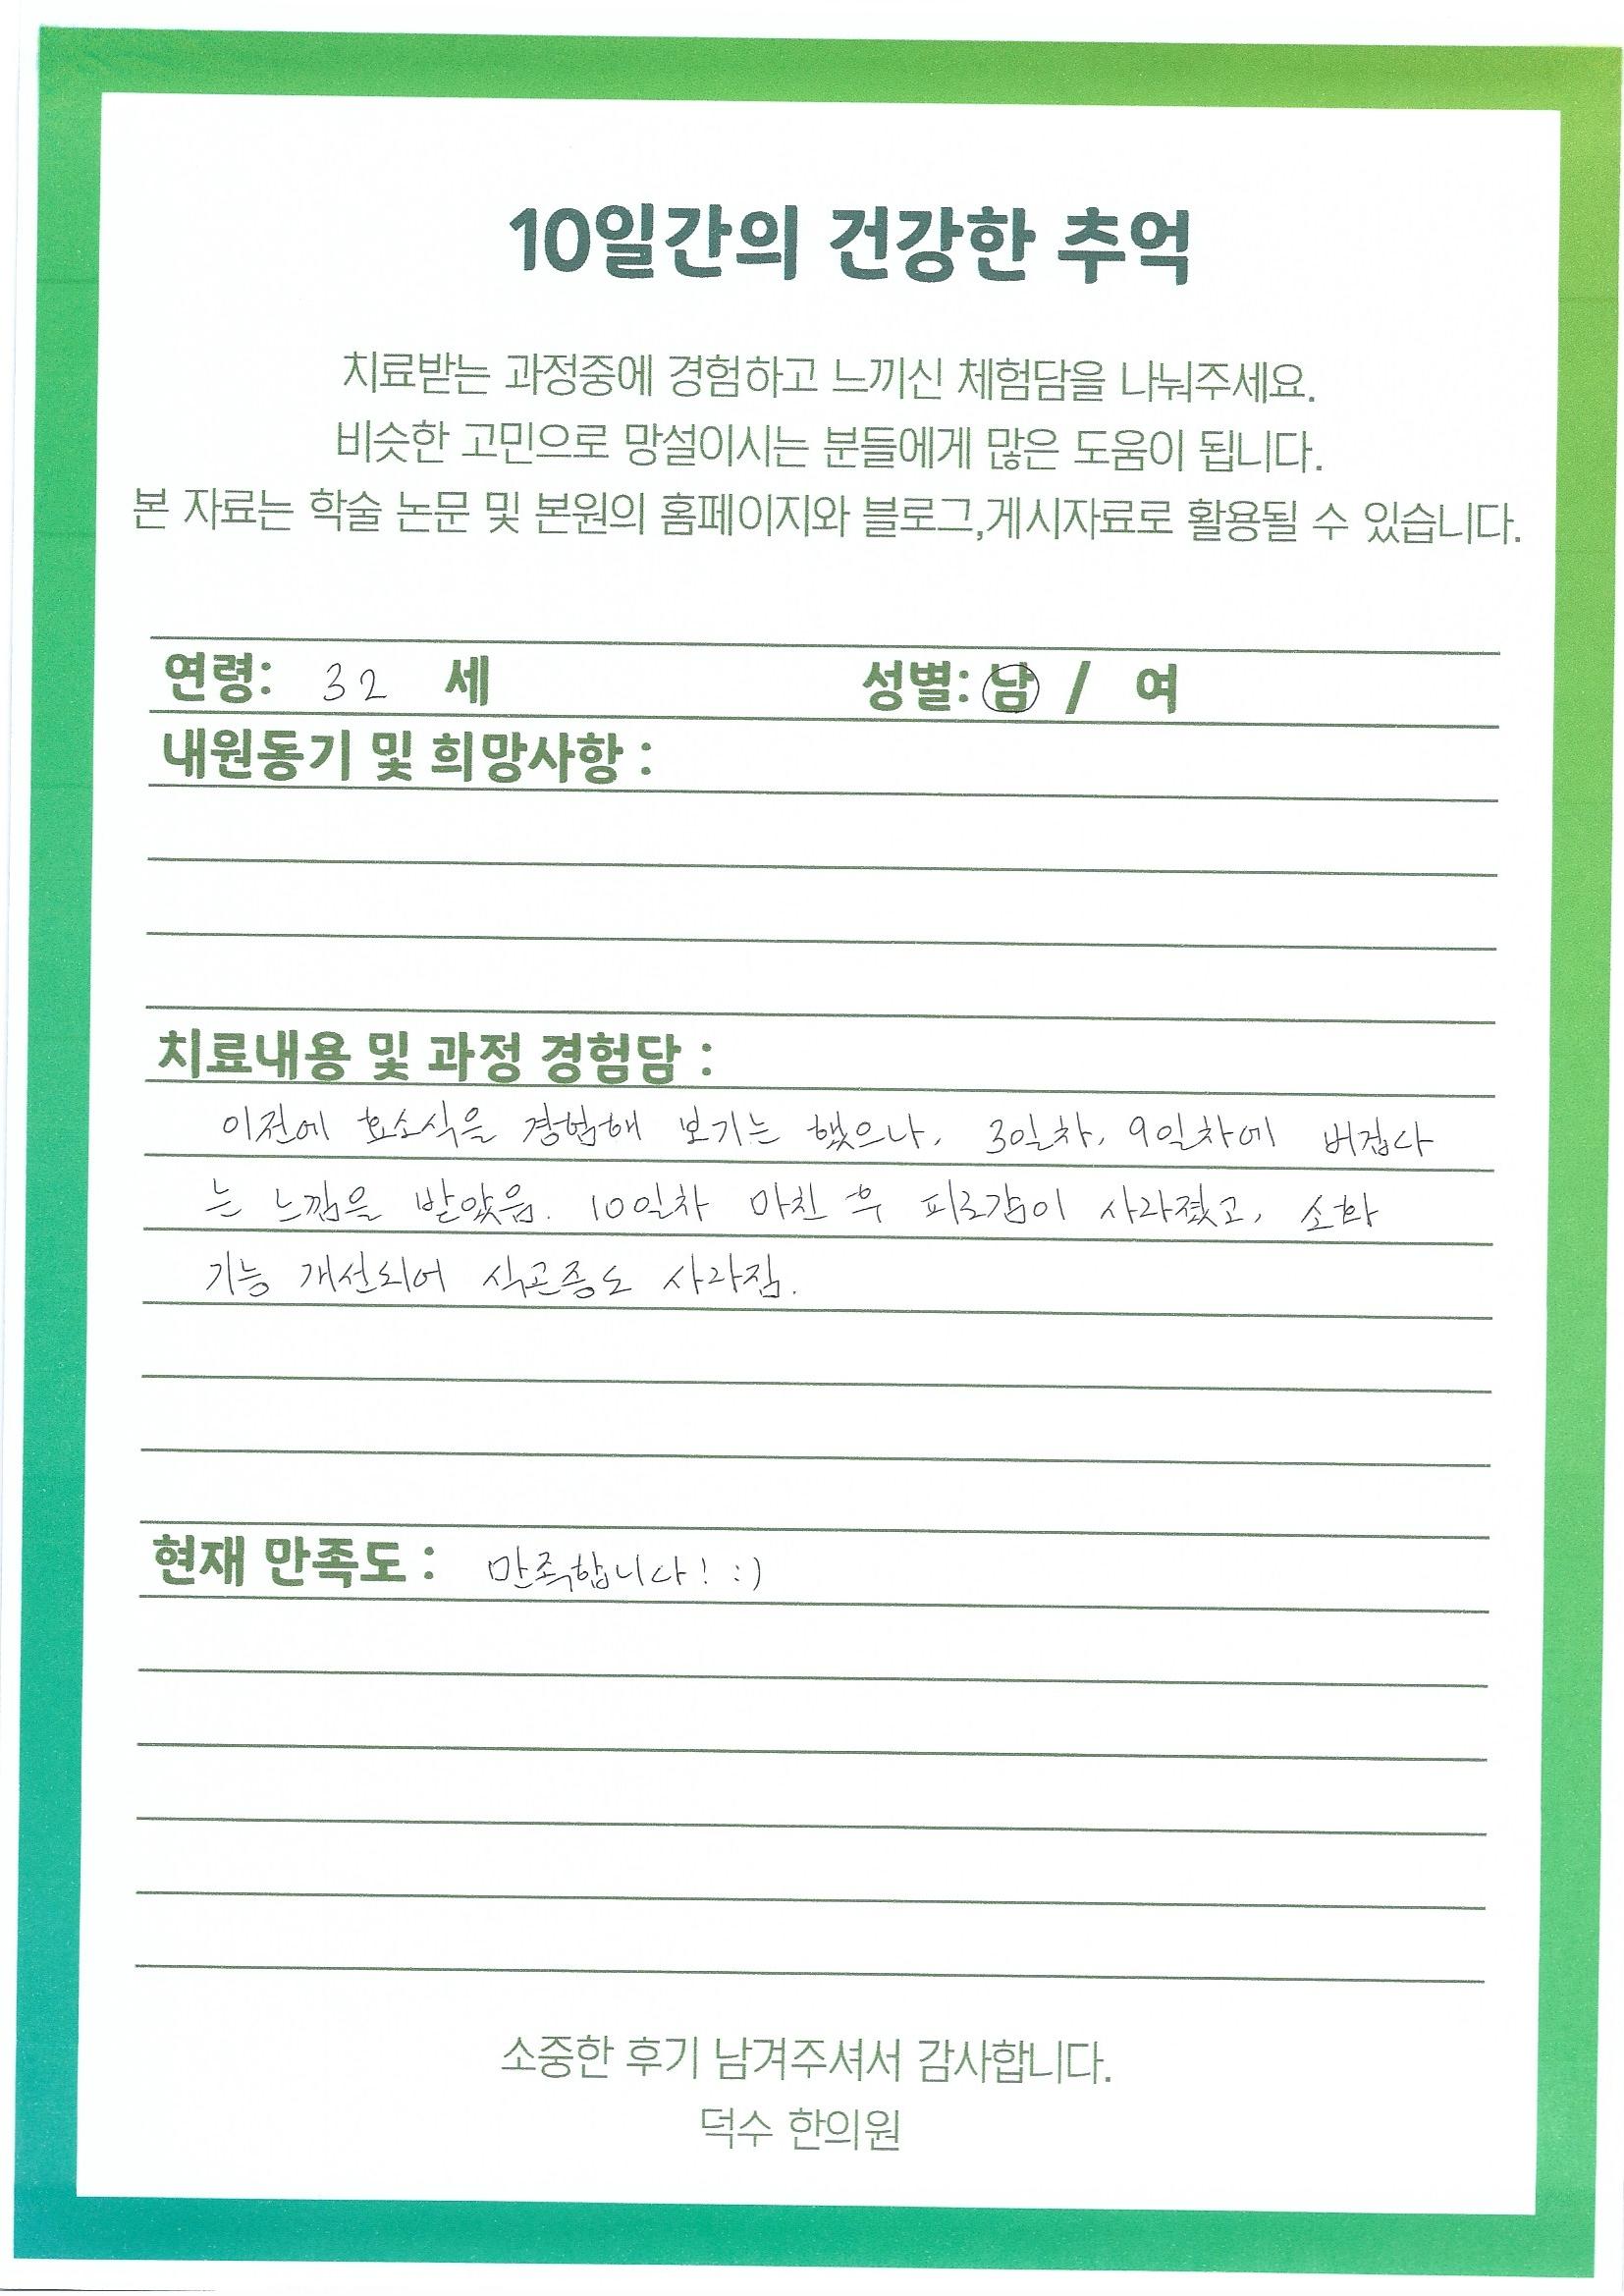 10일간의 건강한 추억
치료받는 과정중에 경험하고 느끼신 체험담을 나눠주세요.
비슷한 고민으로 망설이시는 분들에게 많은 도움이 됩니다.
본 자료는 학술 논문 및 본원의 홈페이지와 블로그,게시자료로 활용될 수 있습니다.
연령: 32 세 성별: 남 / 여
내원동기 및 희망사항 :
치료내용 및 과정 경험담 :
이전에 효소식을 경험해 보기는 했으나, 3일차, 9일차에 버겁다
는 느낌을 받았음. 10일차 마친 후 피로감이 사라졌고, 소화
기능 개선되어 식곤증도 사라짐.
현재 만족도 : 만족합니다! :)
소중한 후기 남겨주셔서 감사합니다.
덕수 한의원